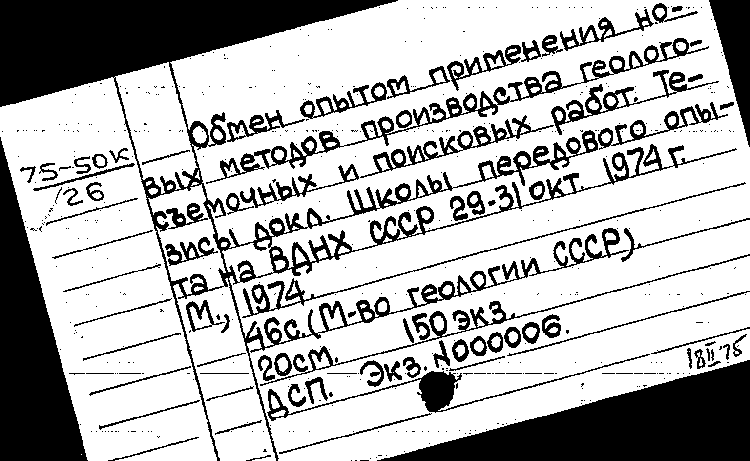 Обмен опытом применения но-
75-50к
26
вых методов производства геолого-
съемочных и поисковых работ. Те-
зисы докл. Школы передового опы-
та на ВДНХ СССР 29-31 окт. 1974 г.
М., 1974.
46с. (М-во геологии СССР).
20см. 150 экз.
ДСП. Экз. N000006.
18 II 75